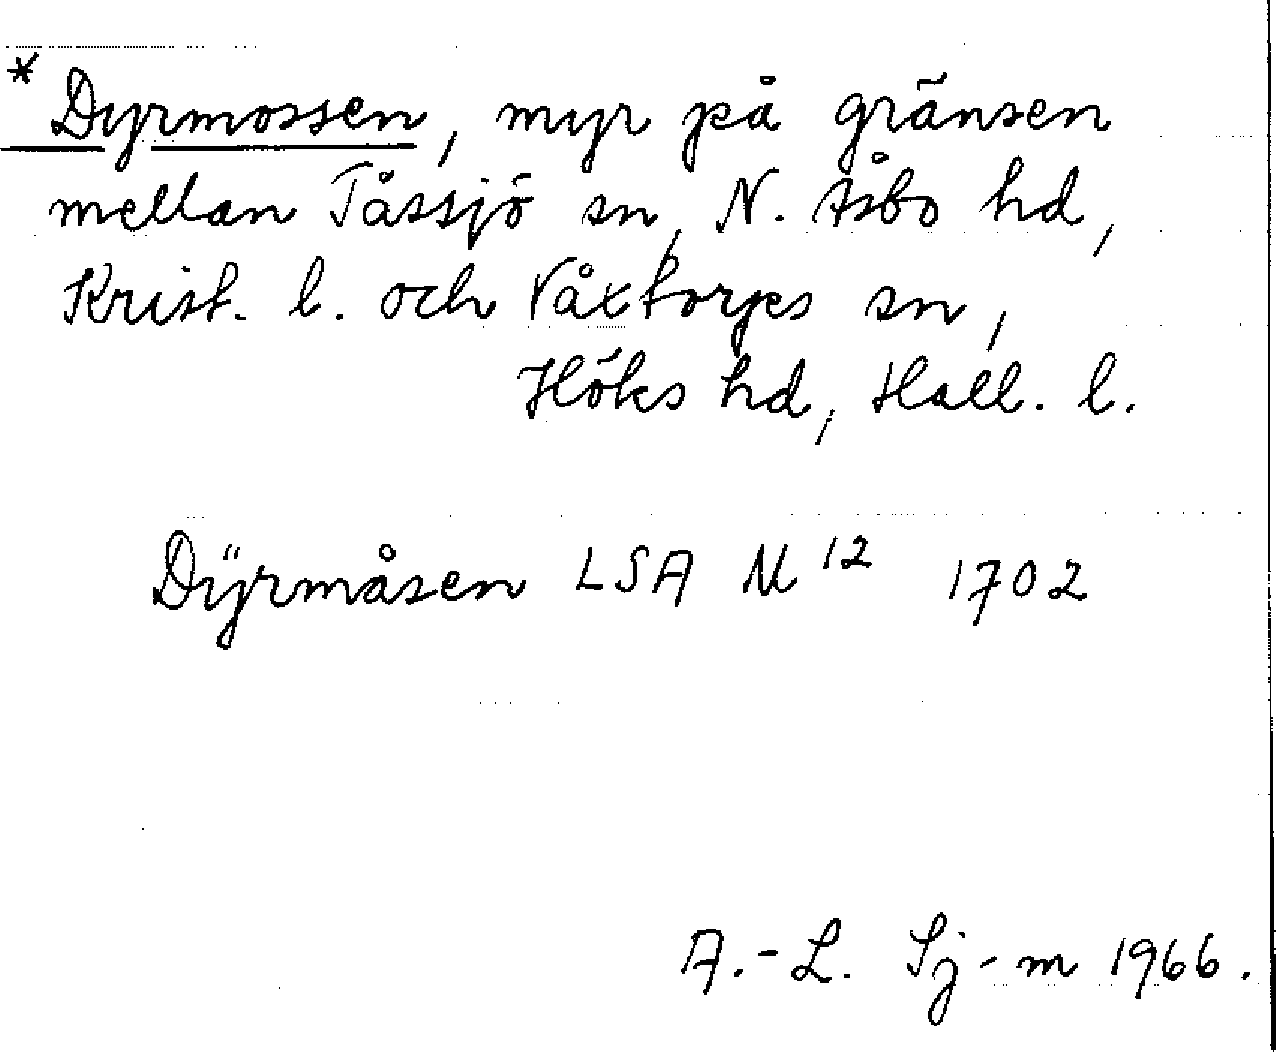 * Dyrmossen, myr på gränsen
mellan Tåssjö sn, N. Åsbo hd,
Krist. l. och Våxtorps sn,
Höks hd, Hall. l.
Dÿrmåsen LSA M 12 1702
A.-L. Sj-m 1966.